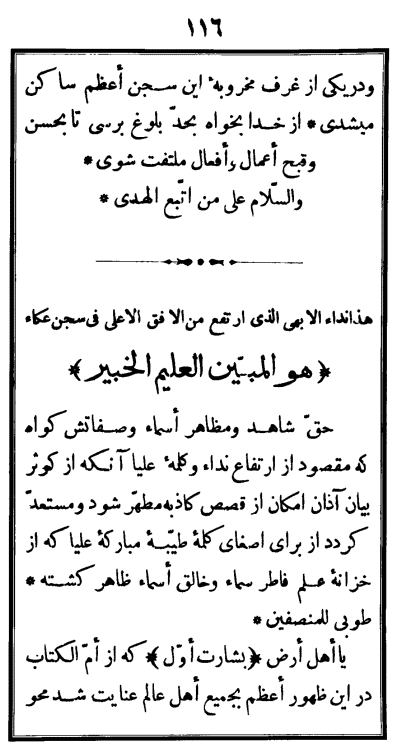 ١١٦
ودريكى از غرف مخروبهٔ اين سجن أعظم ساكن
ميشدى * از خدا بخواه بحدّ بلوغ برسى تا بحسن
وقبح أعمال وأفعال ملتفت شوى *
والسّلام على من اتّبع الهدى *
هذا نداء الابهى الذى ارتفع من الافق الاعلى فى سجن عكاء
﴿ هو المبيّن العليم الخبير ﴾
حقّ شاهد ومظاهر أسماء وصفاتش كواه
كه مقصود از ارتفاع نداء وكلمهٔ عليا آنكه از كوثر
بيان آذان امكان از قصص كاذبه مطهّر شود ومستعدّ
كردد از براى اصغاى كلمهٔ طيّبهٔ مباركهٔ عليا كه از
خزانهٔ علم فاطر سماء وخالق أسماء ظاهر كشته *
طوبى للمنصفين *
يا أهل أرض ﴿ بشارت أوّل ﴾ كه از أمّ الكتاب
در اين ظهور أعظم بجميع أهل عالم عنايت شد محو